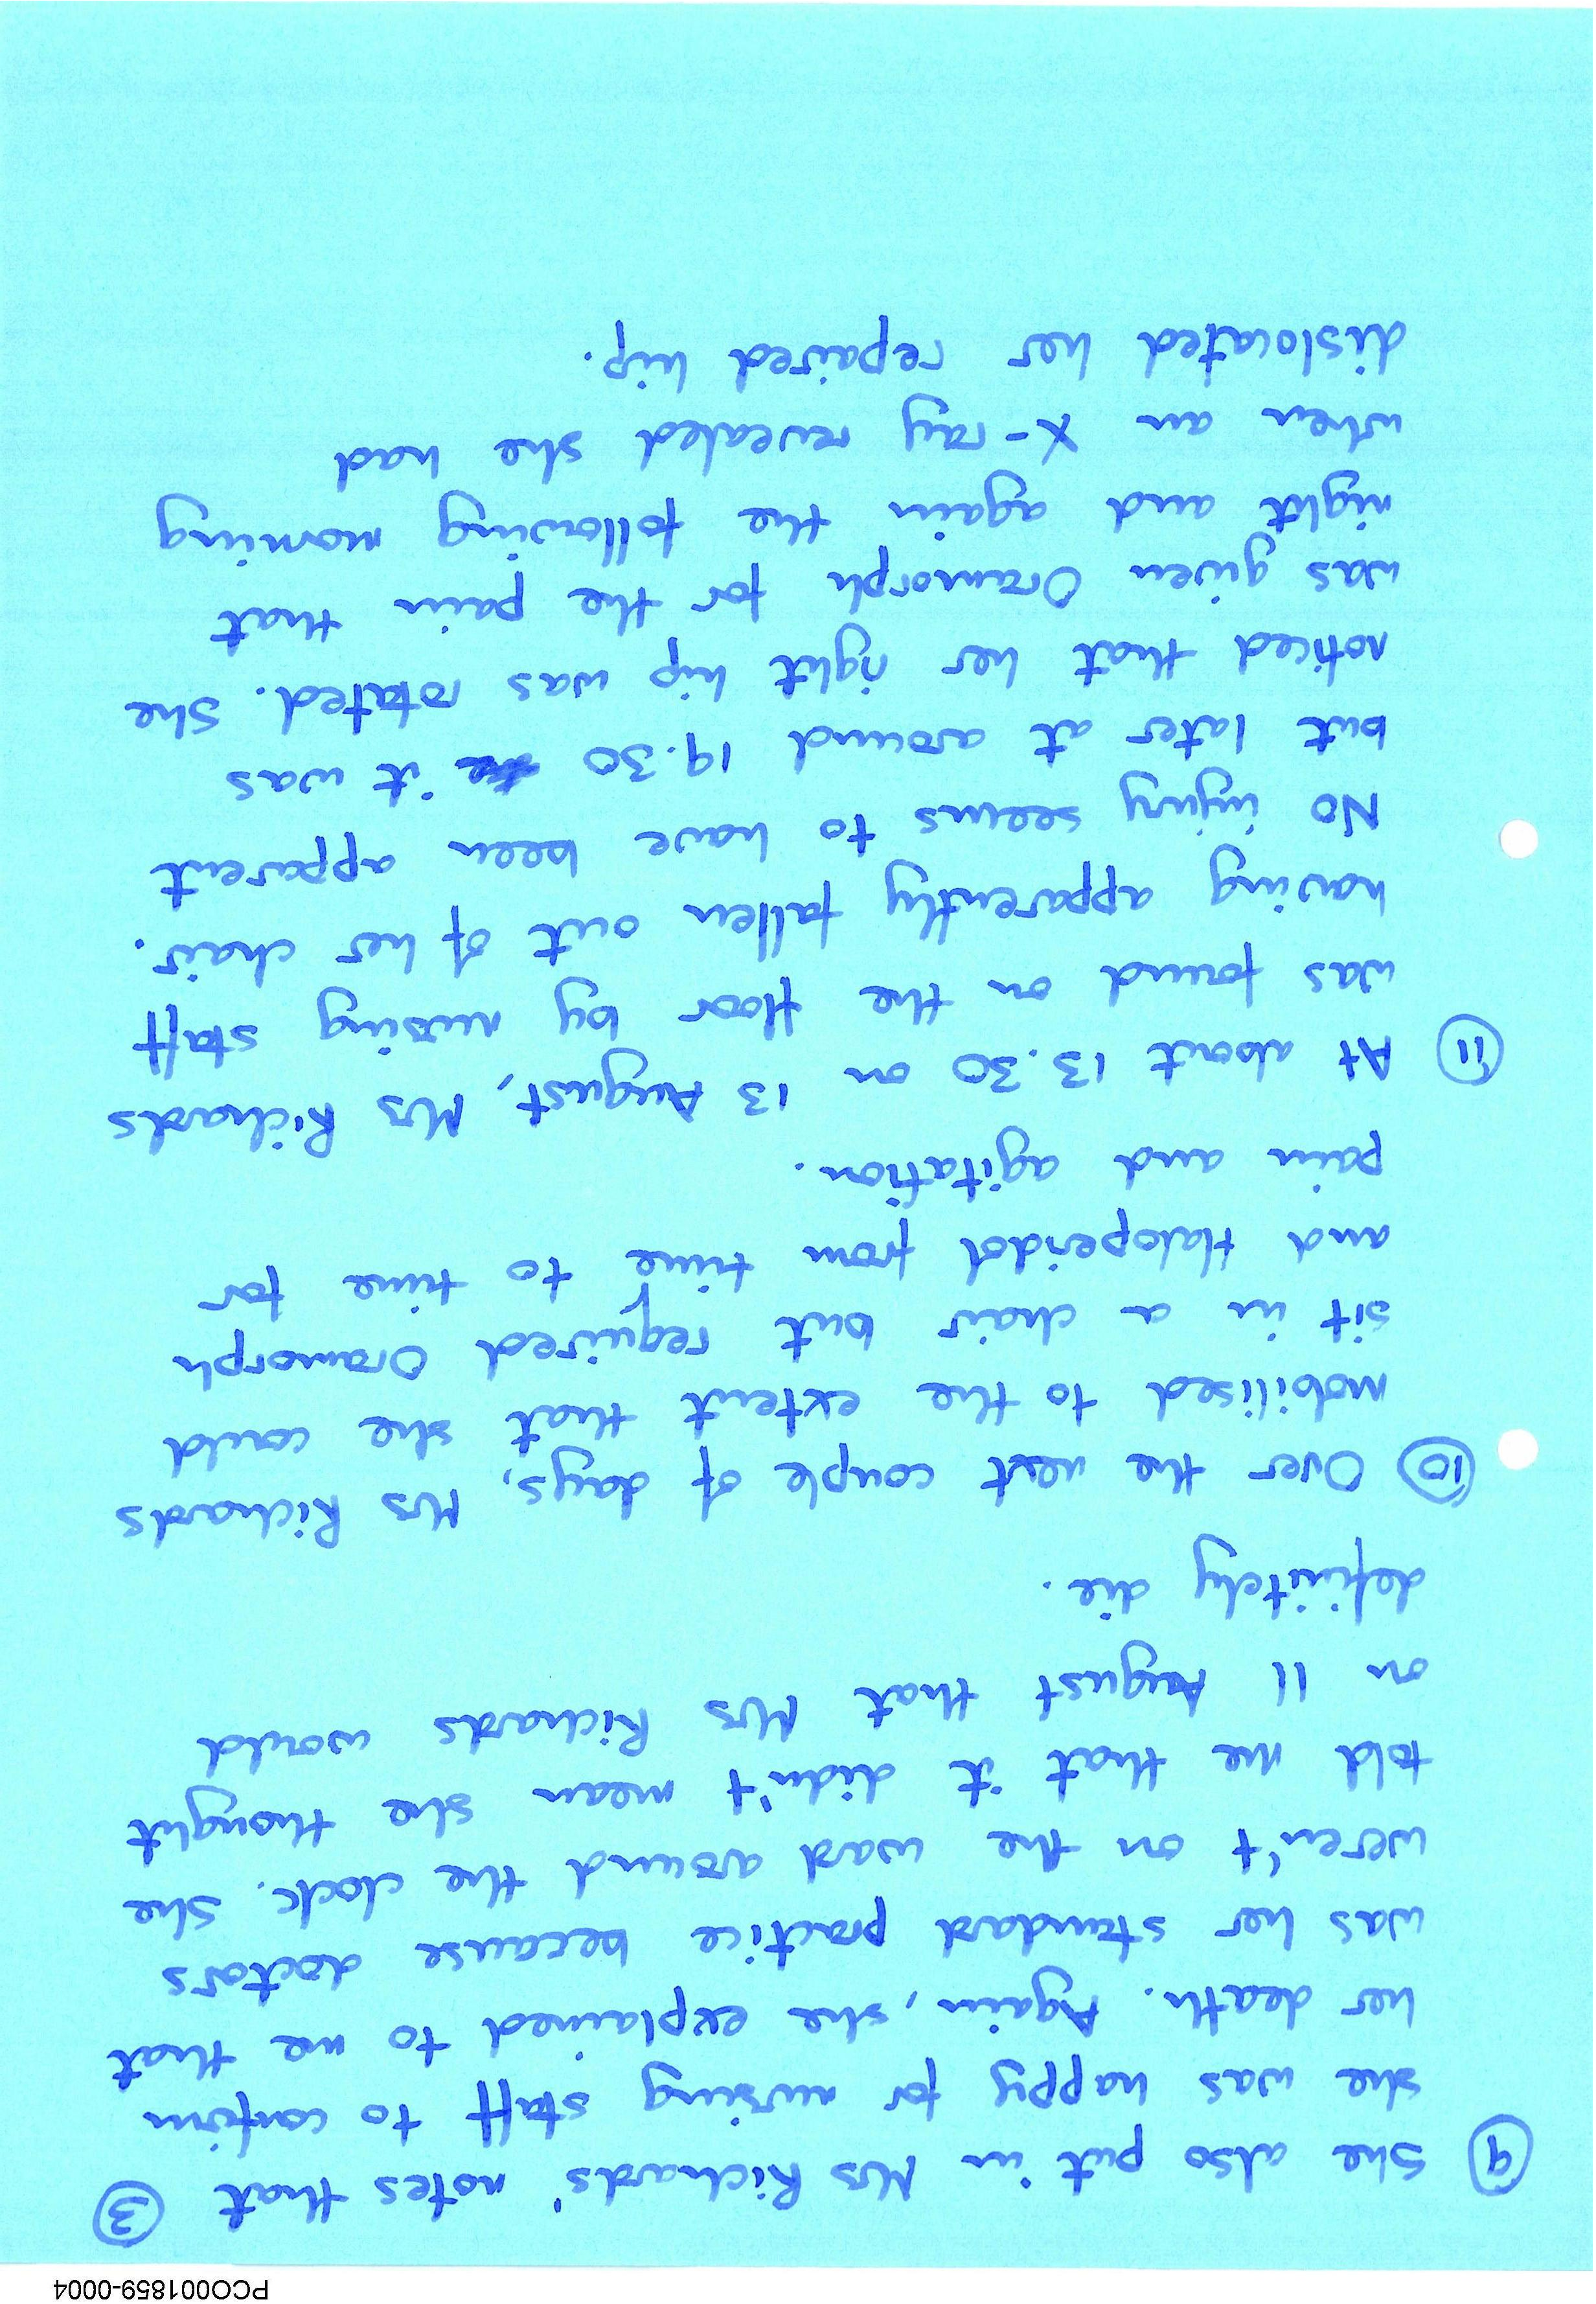 PCO001859-0004
③
⑨ She also put in Mrs Richards' notes that
she was happy for nursing staff to confirm
her death. Again, she explained to me that
was her standard practice because doctors
weren't on the ward around the clock. She
told me that it didn't mean she thought
on 11 August that Mrs Richards would
definitely die.
⑩ Over the next couple of days, Mrs Richards
mobilised to the extent that she could
sit in a chair but required Oramorph
and Haloperidol from time to time for
pain and agitation.
⑪ At about 13.30 on 13 August, Mrs Richards
was found on the floor by nursing staff
having apparently fallen out of her chair.
No injury seems to have been apparent
but later at around 19.30 it was
noticed that her right hip was rotated. She
was given Oramorph for the pain that
night and again the following morning
when an x-ray revealed she had
dislocated her repaired hip.